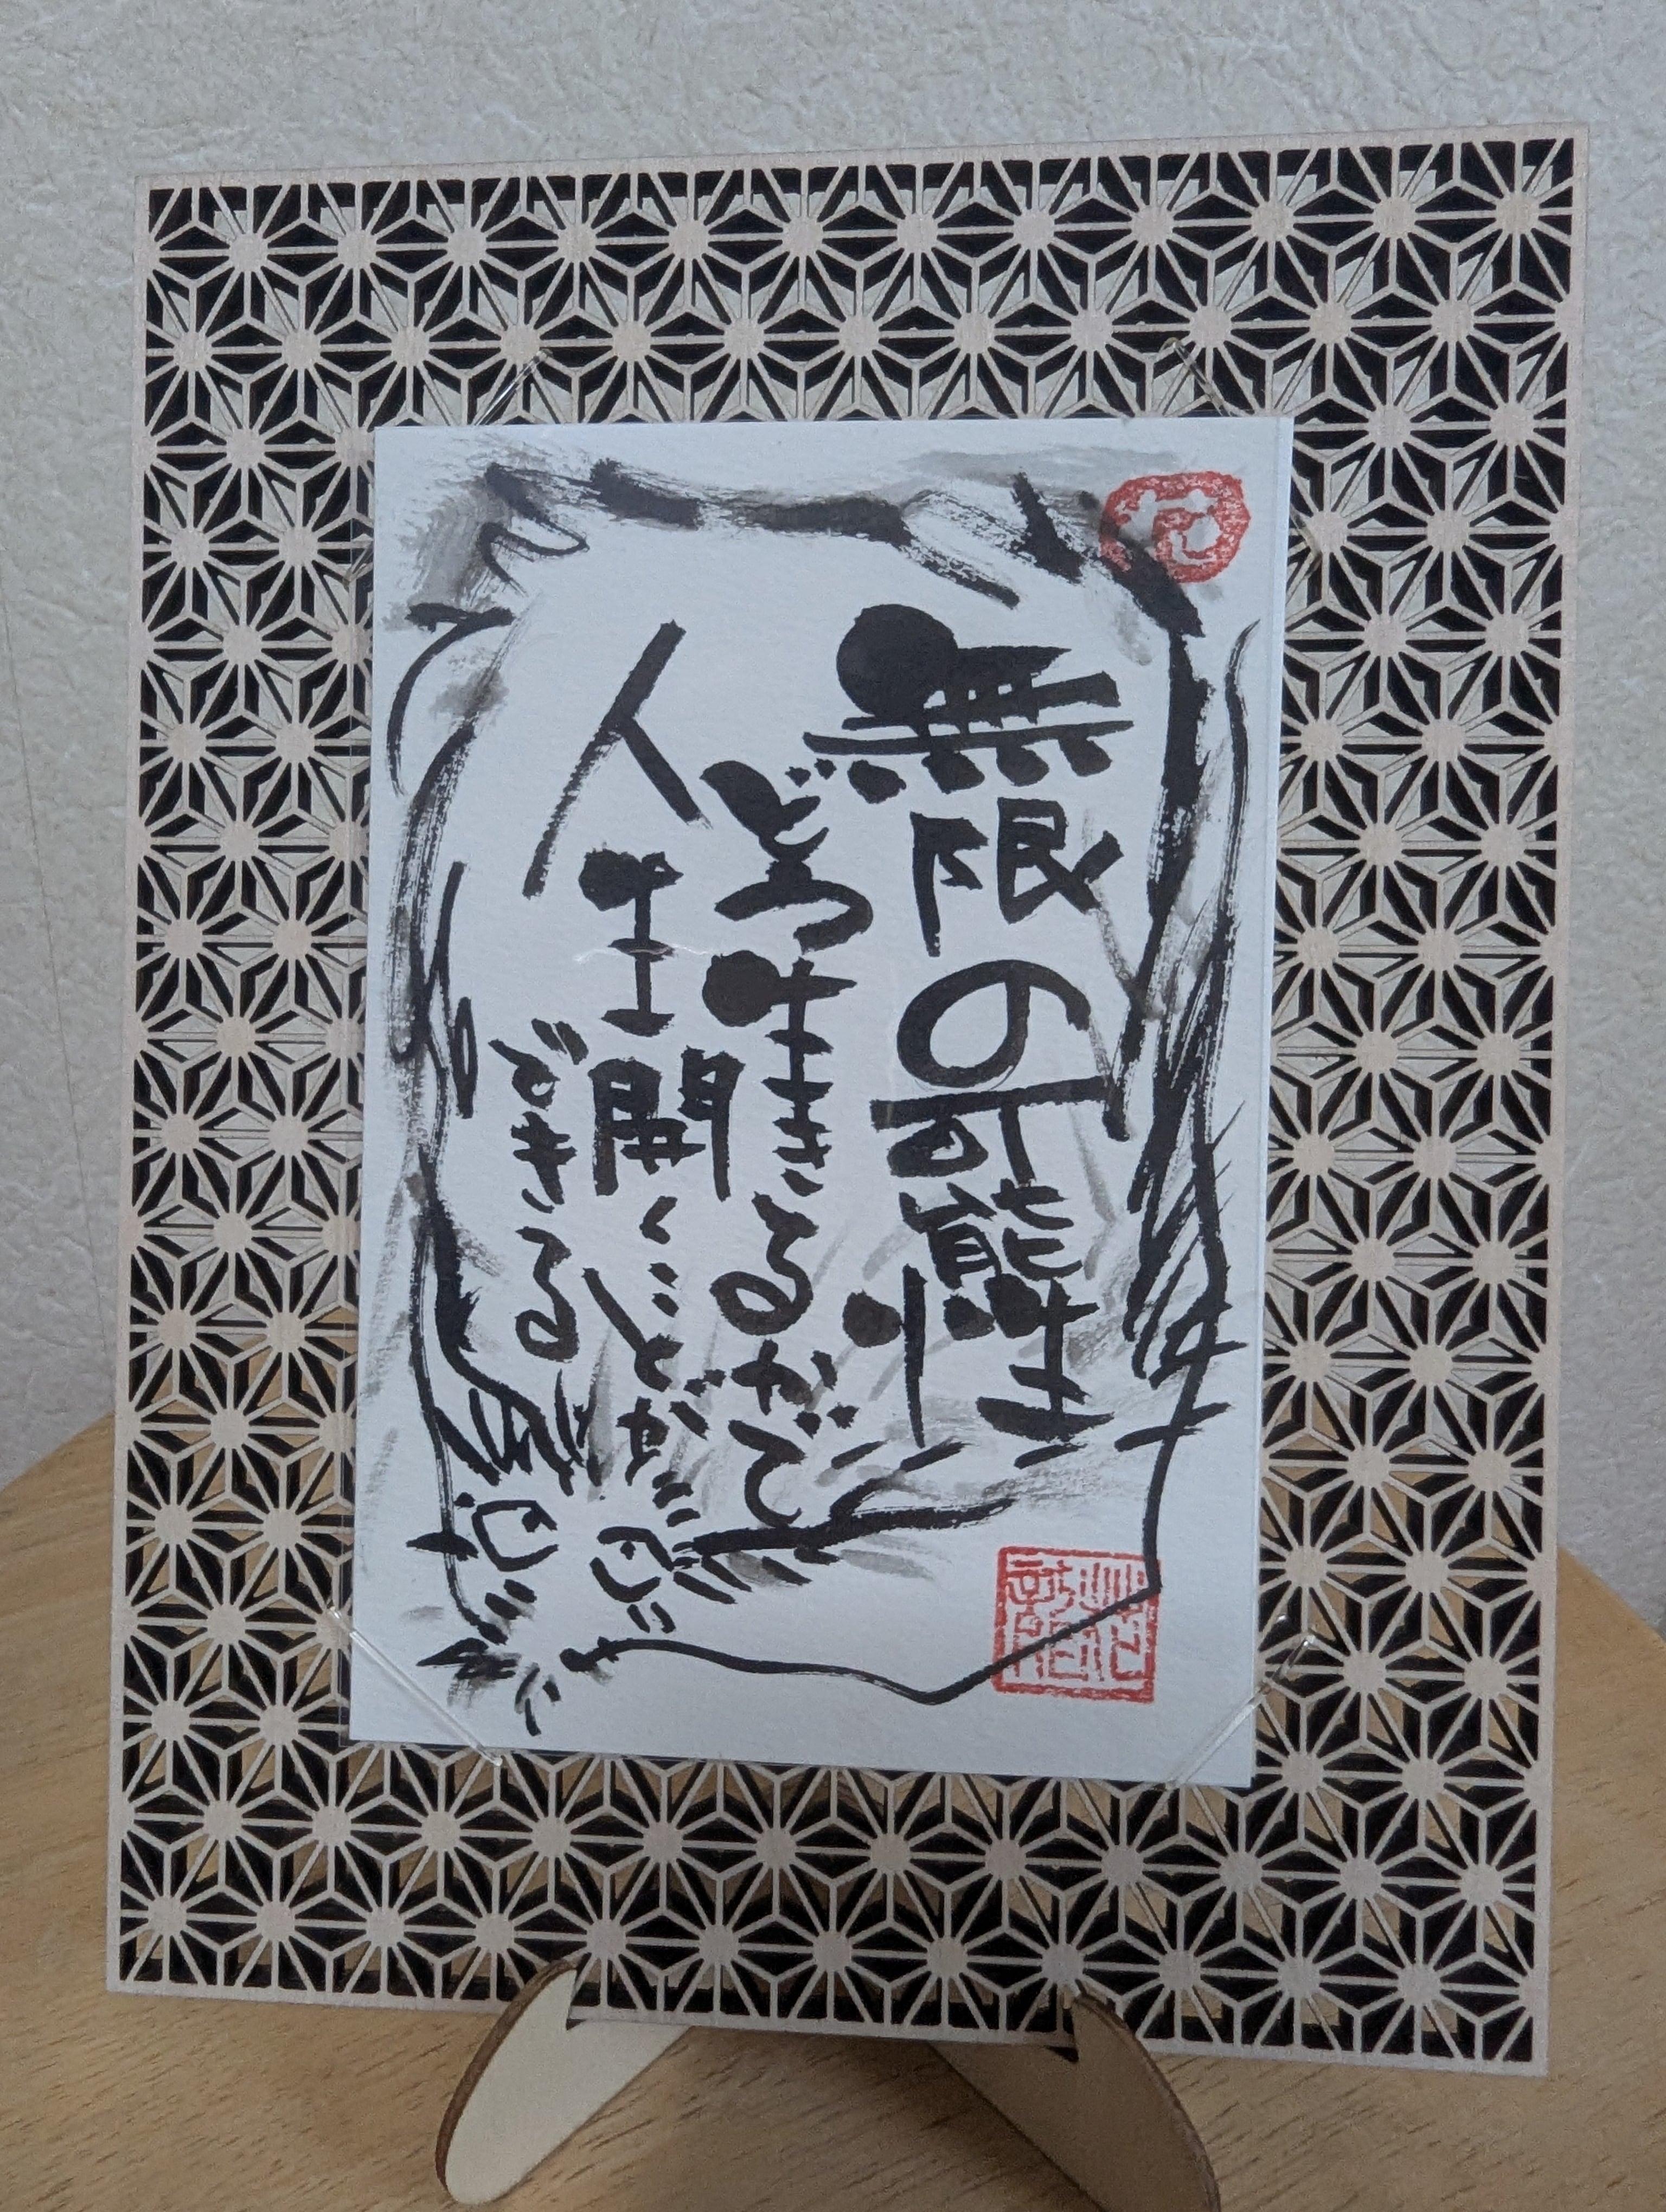 無限の可能性
どう生きるかで
人生開くことが
できる